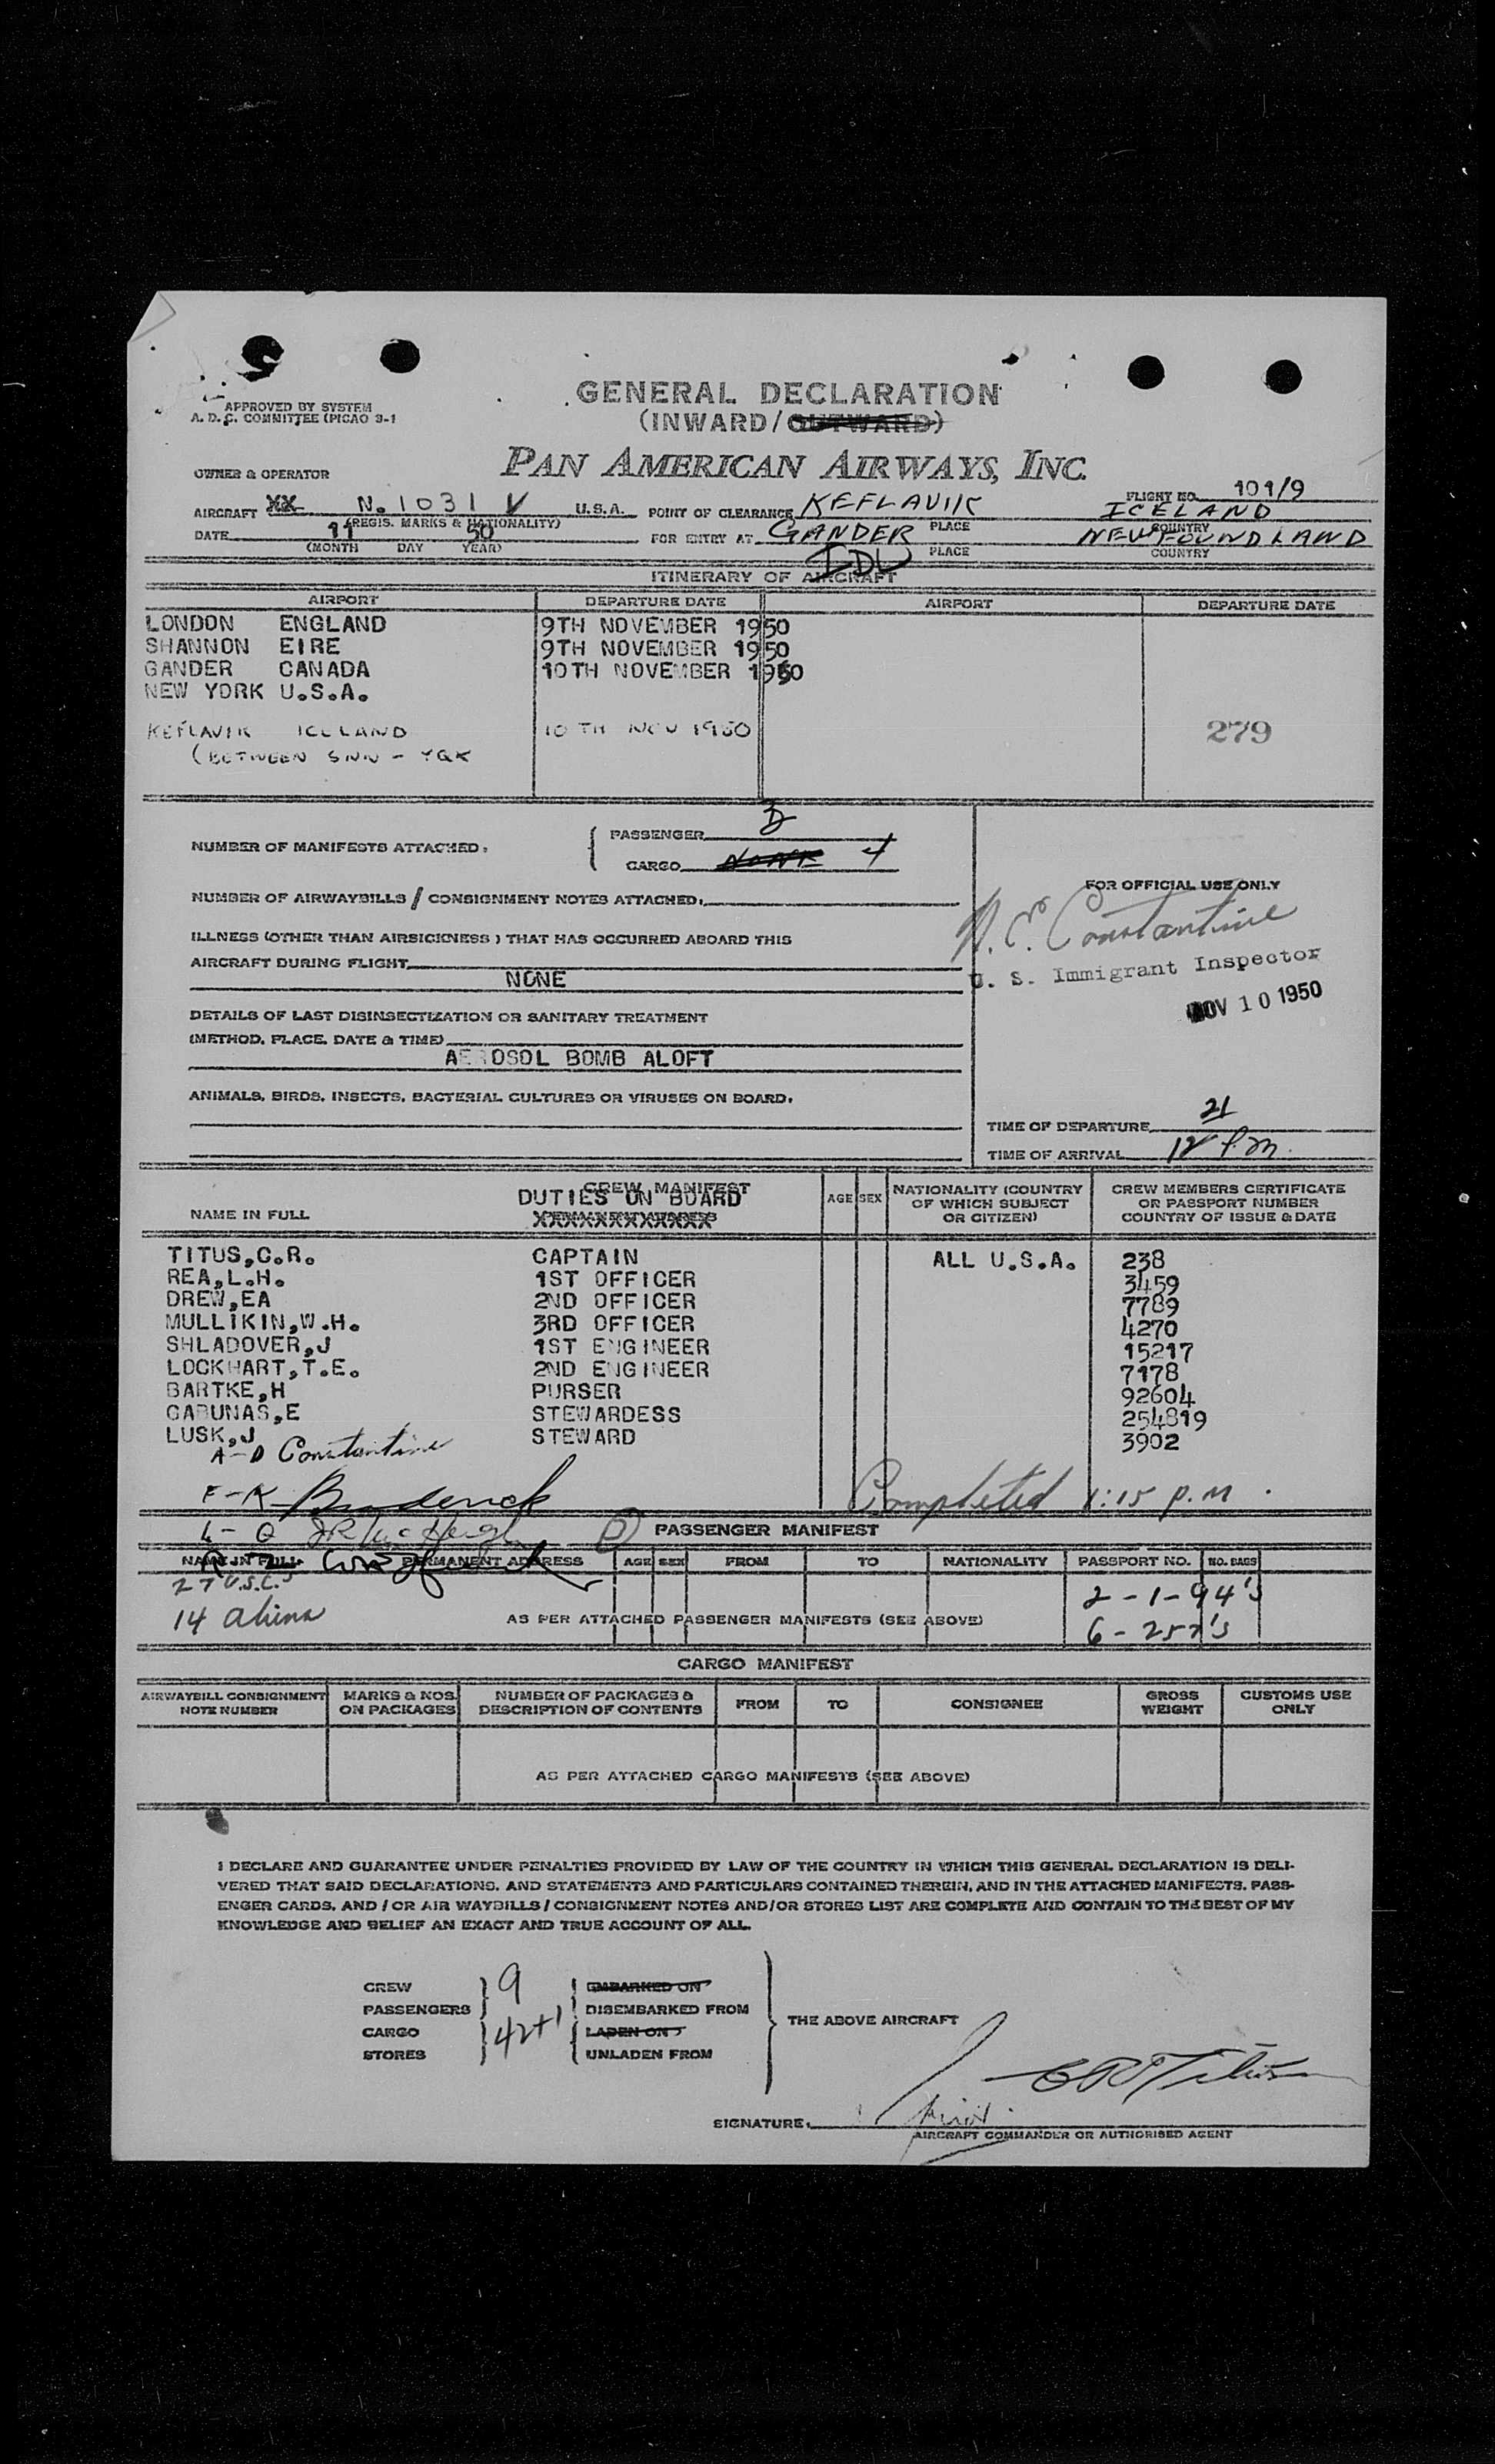 GENERAL DECLARATION
(INWARD/OUTWARD)
APPROVED BY SYSTEM
A. D. C. COMMITTEE (PICAO 3-1
PAN AMERICAN AIRWAYS, INC.
OWNER & OPERATOR
FLIGHT NO. 101/9
AIRCRAFT XX N. 1031 V U.S.A. POINT OF CLEARANCE KEFLAVIK ICELAND
(REGIS. MARKS & NATIONALITY) PLACE COUNTRY
DATE 11 50 FOR ENTRY AT GANDER NEWFOUNDLAND
(MONTH DAY YEAR) PLACE COUNTRY
IDL
ITINERARY OF AIRCRAFT
AIRPORT DEPARTURE DATE AIRPORT DEPARTURE DATE
LONDON ENGLAND 9TH NOVEMBER 1950
SHANNON EIRE 9TH NOVEMBER 1950
GANDER CANADA 10TH NOVEMBER 1950
NEW YORK U.S.A.
KEFLAVIK ICELAND 10TH NOV 1950
279
(BETWEEN SNN - YQX
NUMBER OF MANIFESTS ATTACHED:
PASSENGER
CARGO NONE 4
NUMBER OF AIRWAYBILLS / CONSIGNMENT NOTES ATTACHED:
ILLNESS (OTHER THAN AIRSICKNESS) THAT HAS OCCURRED ABOARD THIS
AIRCRAFT DURING FLIGHT
NONE
DETAILS OF LAST DISINSECTIZATION OR SANITARY TREATMENT
(METHOD, PLACE, DATE & TIME)
AEROSOL BOMB ALOFT
ANIMALS, BIRDS, INSECTS, BACTERIAL CULTURES OR VIRUSES ON BOARD.
FOR OFFICIAL USE ONLY
Constantine
U. S. Immigrant Inspector
NOV 10 1950
TIME OF DEPARTURE 21
TIME OF ARRIVAL 12 P.M.
CREW MANIFEST
NAME IN FULL DUTIES ON BOARD AGE SEX NATIONALITY (COUNTRY OF WHICH SUBJECT OR CITIZEN) CREW MEMBERS CERTIFICATE OR PASSPORT NUMBER COUNTRY OF ISSUE & DATE
XXXXXXXXXXXX
TITUS,C.R. CAPTAIN ALL U.S.A. 238
REA,L.H. 1ST OFFICER 3459
DREW,EA 2ND OFFICER 7789
MULLIKIN,W.H. 3RD OFFICER 4270
SHLADOVER,J 1ST ENGINEER 15217
LOCKHART,T.E. 2ND ENGINEER 7178
BARTKE,H PURSER 92604
GABUNAS,E STEWARDESS 254819
LUSK,J STEWARD 3902
A-D Constantine
E-K Broderick
Completed 1:15 p.m.
L-Q
PASSENGER MANIFEST
NAME IN FULL PERMANENT ADDRESS AGE SEX FROM TO NATIONALITY PASSPORT NO. NO. BAGS
27 U.S.C.'s
2-1-94's
14 aliens
AS PER ATTACHED PASSENGER MANIFESTS (SEE ABOVE)
6-257's
CARGO MANIFEST
AIRWAYBILL CONSIGNMENT NOTE NUMBER MARKS & NOS. ON PACKAGES NUMBER OF PACKAGES & DESCRIPTION OF CONTENTS FROM TO CONSIGNEE GROSS WEIGHT CUSTOMS USE ONLY
AS PER ATTACHED CARGO MANIFESTS (SEE ABOVE)
I DECLARE AND GUARANTEE UNDER PENALTIES PROVIDED BY LAW OF THE COUNTRY IN WHICH THIS GENERAL DECLARATION IS DELI-
VERED THAT SAID DECLARATIONS, AND STATEMENTS AND PARTICULARS CONTAINED THEREIN, AND IN THE ATTACHED MANIFESTS, PASS-
ENGER CARDS, AND / OR AIR WAYBILLS / CONSIGNMENT NOTES AND/OR STORES LIST ARE COMPLETE AND CONTAIN TO THE BEST OF MY
KNOWLEDGE AND BELIEF AN EXACT AND TRUE ACCOUNT OF ALL.
CREW 9 EMBARKED ON
PASSENGERS DISEMBARKED FROM
THE ABOVE AIRCRAFT
CARGO 42+1 LADEN ON
STORES UNLADEN FROM
CR Titus
SIGNATURE:
AIRCRAFT COMMANDER OR AUTHORISED AGENT